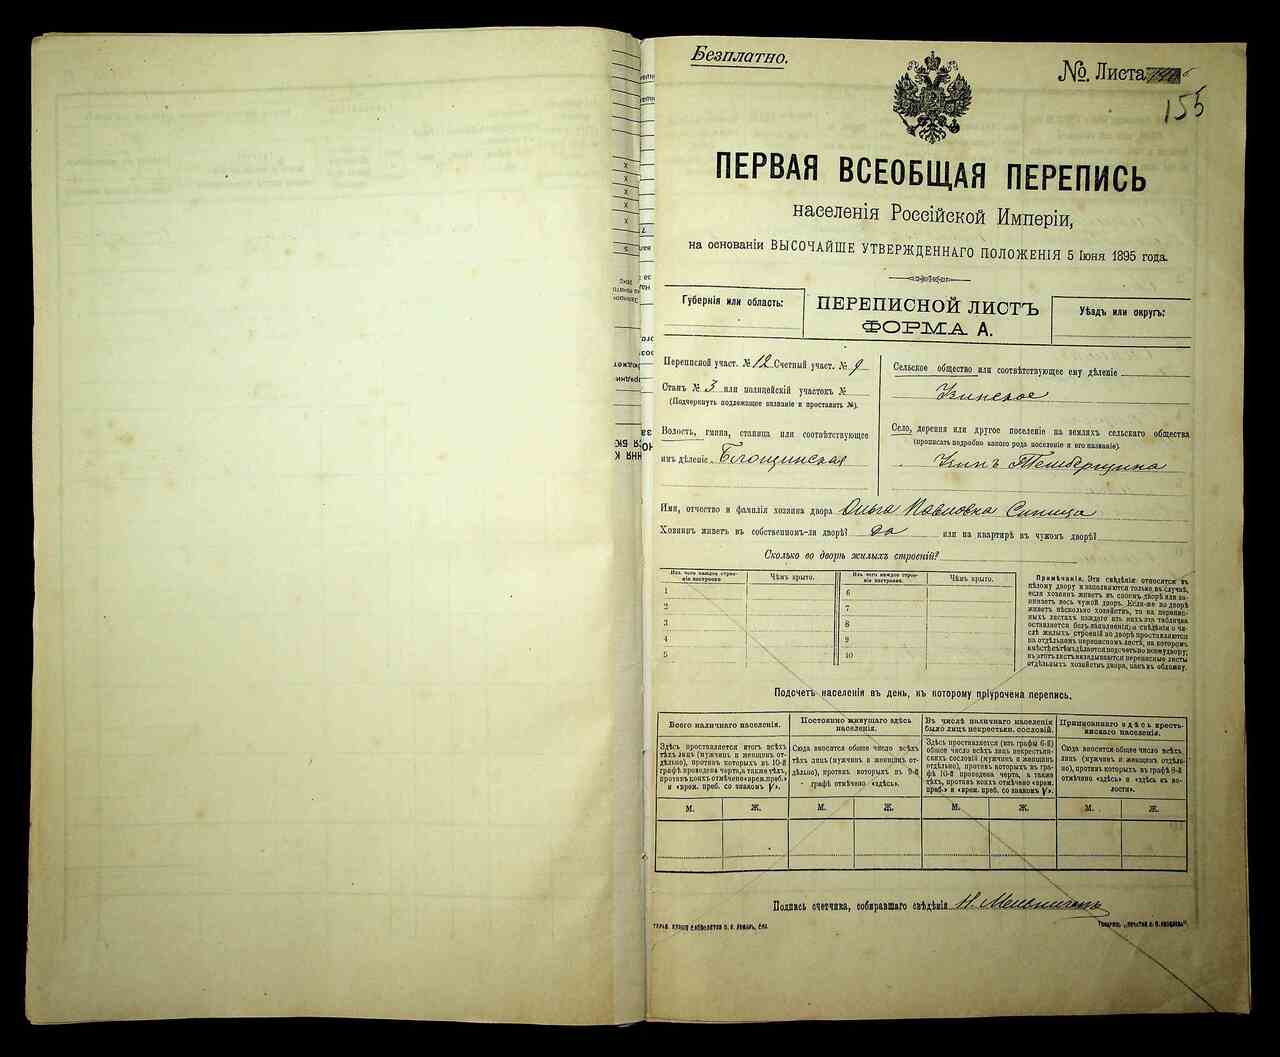 Безплатно.
№ Листа
155
ПЕРВАЯ ВСЕОБЩАЯ ПЕРЕПИСЬ
населенія Россійской Имперіи,
на основаніи ВЫСОЧАЙШЕ УТВЕРЖДЕННАГО ПОЛОЖЕНІЯ 5 Іюня 1895 года.
Губернія или область:
ПЕРЕПИСНОЙ ЛИСТЪ
ФОРМА А.
Уѣздъ или округъ:
Переписной участ. № 12 Счетный участ. № 9
Станъ № 3 или полицейскій участокъ №
(Подчеркнуть подлежащее названіе и проставить №).
Волость, гмина, станица или соотвѣтствующее
имъ дѣленіе
Сельское общество или соотвѣтствующее ему дѣленіе
Село, деревня или другое поселеніе на земляхъ сельскаго общества
(прописать подробно какого рода поселеніе и его названіе)
Имя, отчество и фамилія хозяина двора Ольга Павловна Синица
Хозяинъ живетъ въ собственномъ-ли дворѣ? да или на квартирѣ въ чужомъ дворѣ?
Сколько во дворѣ жилыхъ строеній?
Изъ чего каждое строе-
ніе построено
Чѣмъ крыто.
1
2
3
4
5
Изъ чего каждое строе-
ніе построено
Чѣмъ крыто.
6
7
8
9
10
Примѣчанія. Эти свѣдѣнія относятся къ
цѣлому двору и заполняются только въ случаѣ,
если хозяинъ живетъ въ своемъ дворѣ или за-
нимаетъ весь чужой дворъ. Если-же во дворѣ
живетъ нѣсколько хозяйствъ, то на перепис-
ныхъ листахъ каждаго изъ нихъ эта табличка
оставляется безъ заполненія; а свѣдѣнія о чи-
слѣ жилыхъ строеній во дворѣ проставляются
на отдѣльномъ переписномъ листѣ, на которомъ
вмѣстѣ съ тѣмъ дѣлается подсчетъ по всему двору;
въ этотъ листъ вкладываются переписные листы
отдѣльныхъ хозяйствъ двора, какъ въ обложку.
Подсчетъ населенія въ день, къ которому пріурочена перепись.
Всего наличнаго населенія.
Здѣсь проставляется итогъ всѣхъ
лицъ (мужчинъ и женщинъ от-
дѣльно), противъ которыхъ въ 10-й
графѣ проведена черта, а также тѣхъ,
противъ коихъ отмѣчено «врем. преб.»
и «врем. преб. со знакомъ V».
М.
Ж.
Постоянно живущаго здѣсь
населенія.
Сюда вносится общее число всѣхъ
тѣхъ лицъ (мужчинъ и женщинъ от-
дѣльно), противъ которыхъ въ 9-й
графѣ отмѣчено «здѣсь».
М.
Ж.
Въ числѣ наличнаго населенія
было лицъ некрестьян. сословій.
Здѣсь проставляется (изъ графы 6-й)
общее число всѣхъ лицъ некрестьян-
скихъ сословій (мужчинъ и женщинъ
отдѣльно), противъ которыхъ въ гра-
фѣ 10-й проведена черта, а также
тѣхъ, противъ коихъ отмѣчено «врем.
преб.» и «врем. преб. со знакомъ V».
М.
Ж.
Приписаннаго здѣсь кресть-
янскаго населенія.
Сюда вносится общее число всѣхъ
лицъ (мужчинъ и женщинъ отдѣль-
но), противъ которыхъ въ графѣ 8-й
отмѣчено «здѣсь» и «здѣсь въ во-
лости».
М.
Ж.
Подпись счетчика, собиравшаго свѣдѣнія Н. Мельничукъ